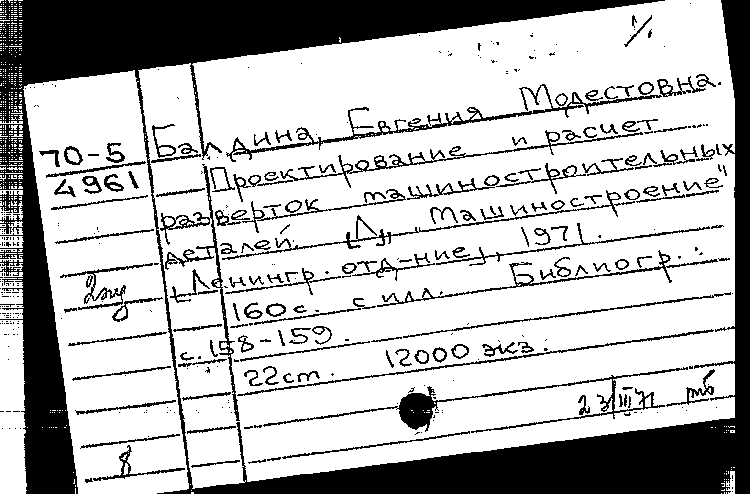 70-5
4961
Балдина, Евгения Модестовна.
Проектирование и расчет
разверток машиностроительных
деталей. [Л], "Машиностроение"
[Ленингр. отд-ние], 1971.
160 с. с илл. Библиогр.:
с. 158-159.
22 cm. 12000 экз.
23/III 71
8